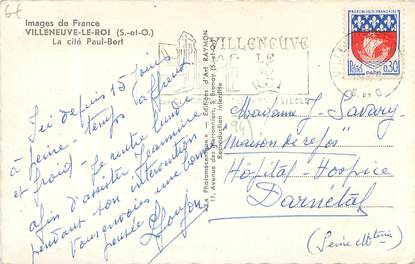 Images de France
VILLENEUVE-LE-ROI (S.-et-O.)
La cité Paul-Bert
Ici depuis 15 jours
à peine - temps affreux
et froid. Je rentre lundi
afin d'assister Jeannine
pendant son intervention
Vous envoies une bonne
pensée
"La Photomécanique" — Editions d'Art RAYMON
17, Avenue des à Brunoy (S.-et-O.)
Reproduction interdite
VILLENEUVE
LE
ROI
SIÈCLE
RÉPUBLIQUE FRANÇAISE
Postes 0,30
PARIS
Madame J. Savary
"Maison de repos"
Hôpital-Hospice
Darnétal
(Seine Mtime)